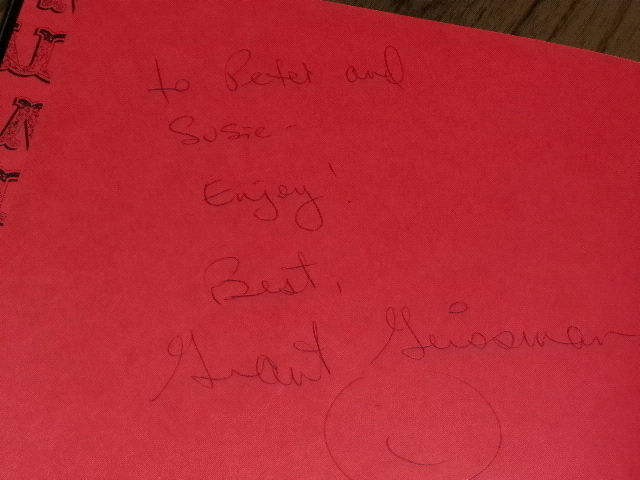 to Peter and
Susie-
Enjoy!
Best,
Grant Geissman